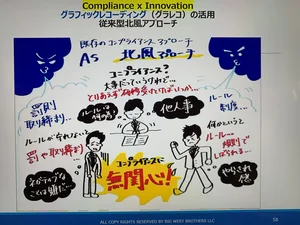 Compliance x Innovation
グラフィックレコーディング（グラレコ）の活用
従来型北風アプローチ
既存のコンプライアンスアプローチ
AS
北風アプローチ
コンプライアンス?
大事だっていうけれど…
とりあえず研修受ければいいか…
罰則
取り締まり…
ルールは
何のため?
他人事
ルール
制度…
ルールが守れない
罰や取り締まり…
何かというと
ルール…
規則で
しばられる…
ネガティブな
ことは嫌だ…
コンプライアンスに
無関心!
やらされ
感
ALL COPY RIGHTS RESERVED BY BIG WEST BROTHERS LLC
58